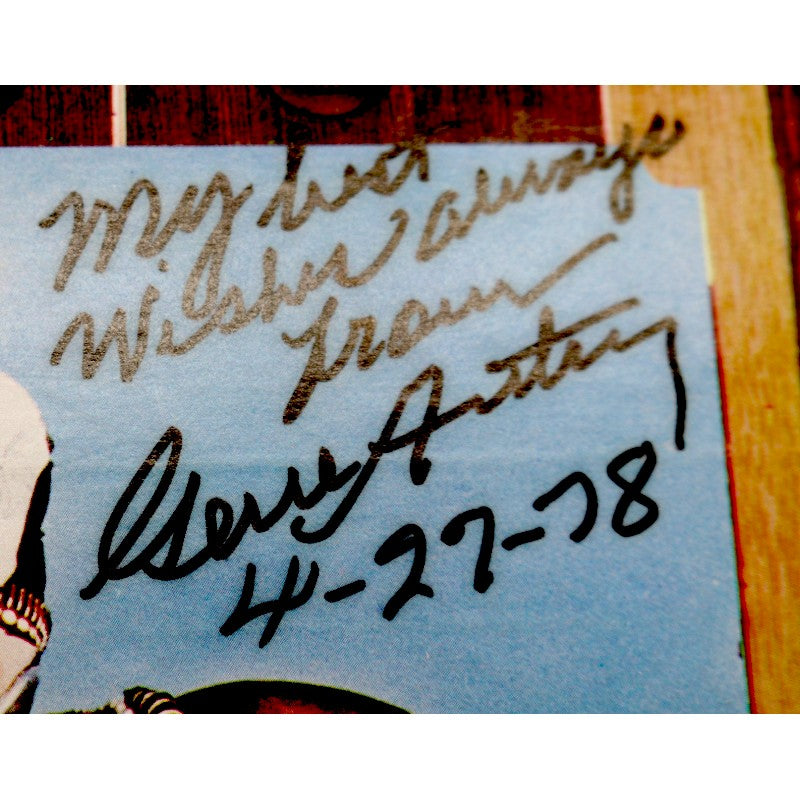 My best
Wishes always
from
Gene Autry
4-27-78